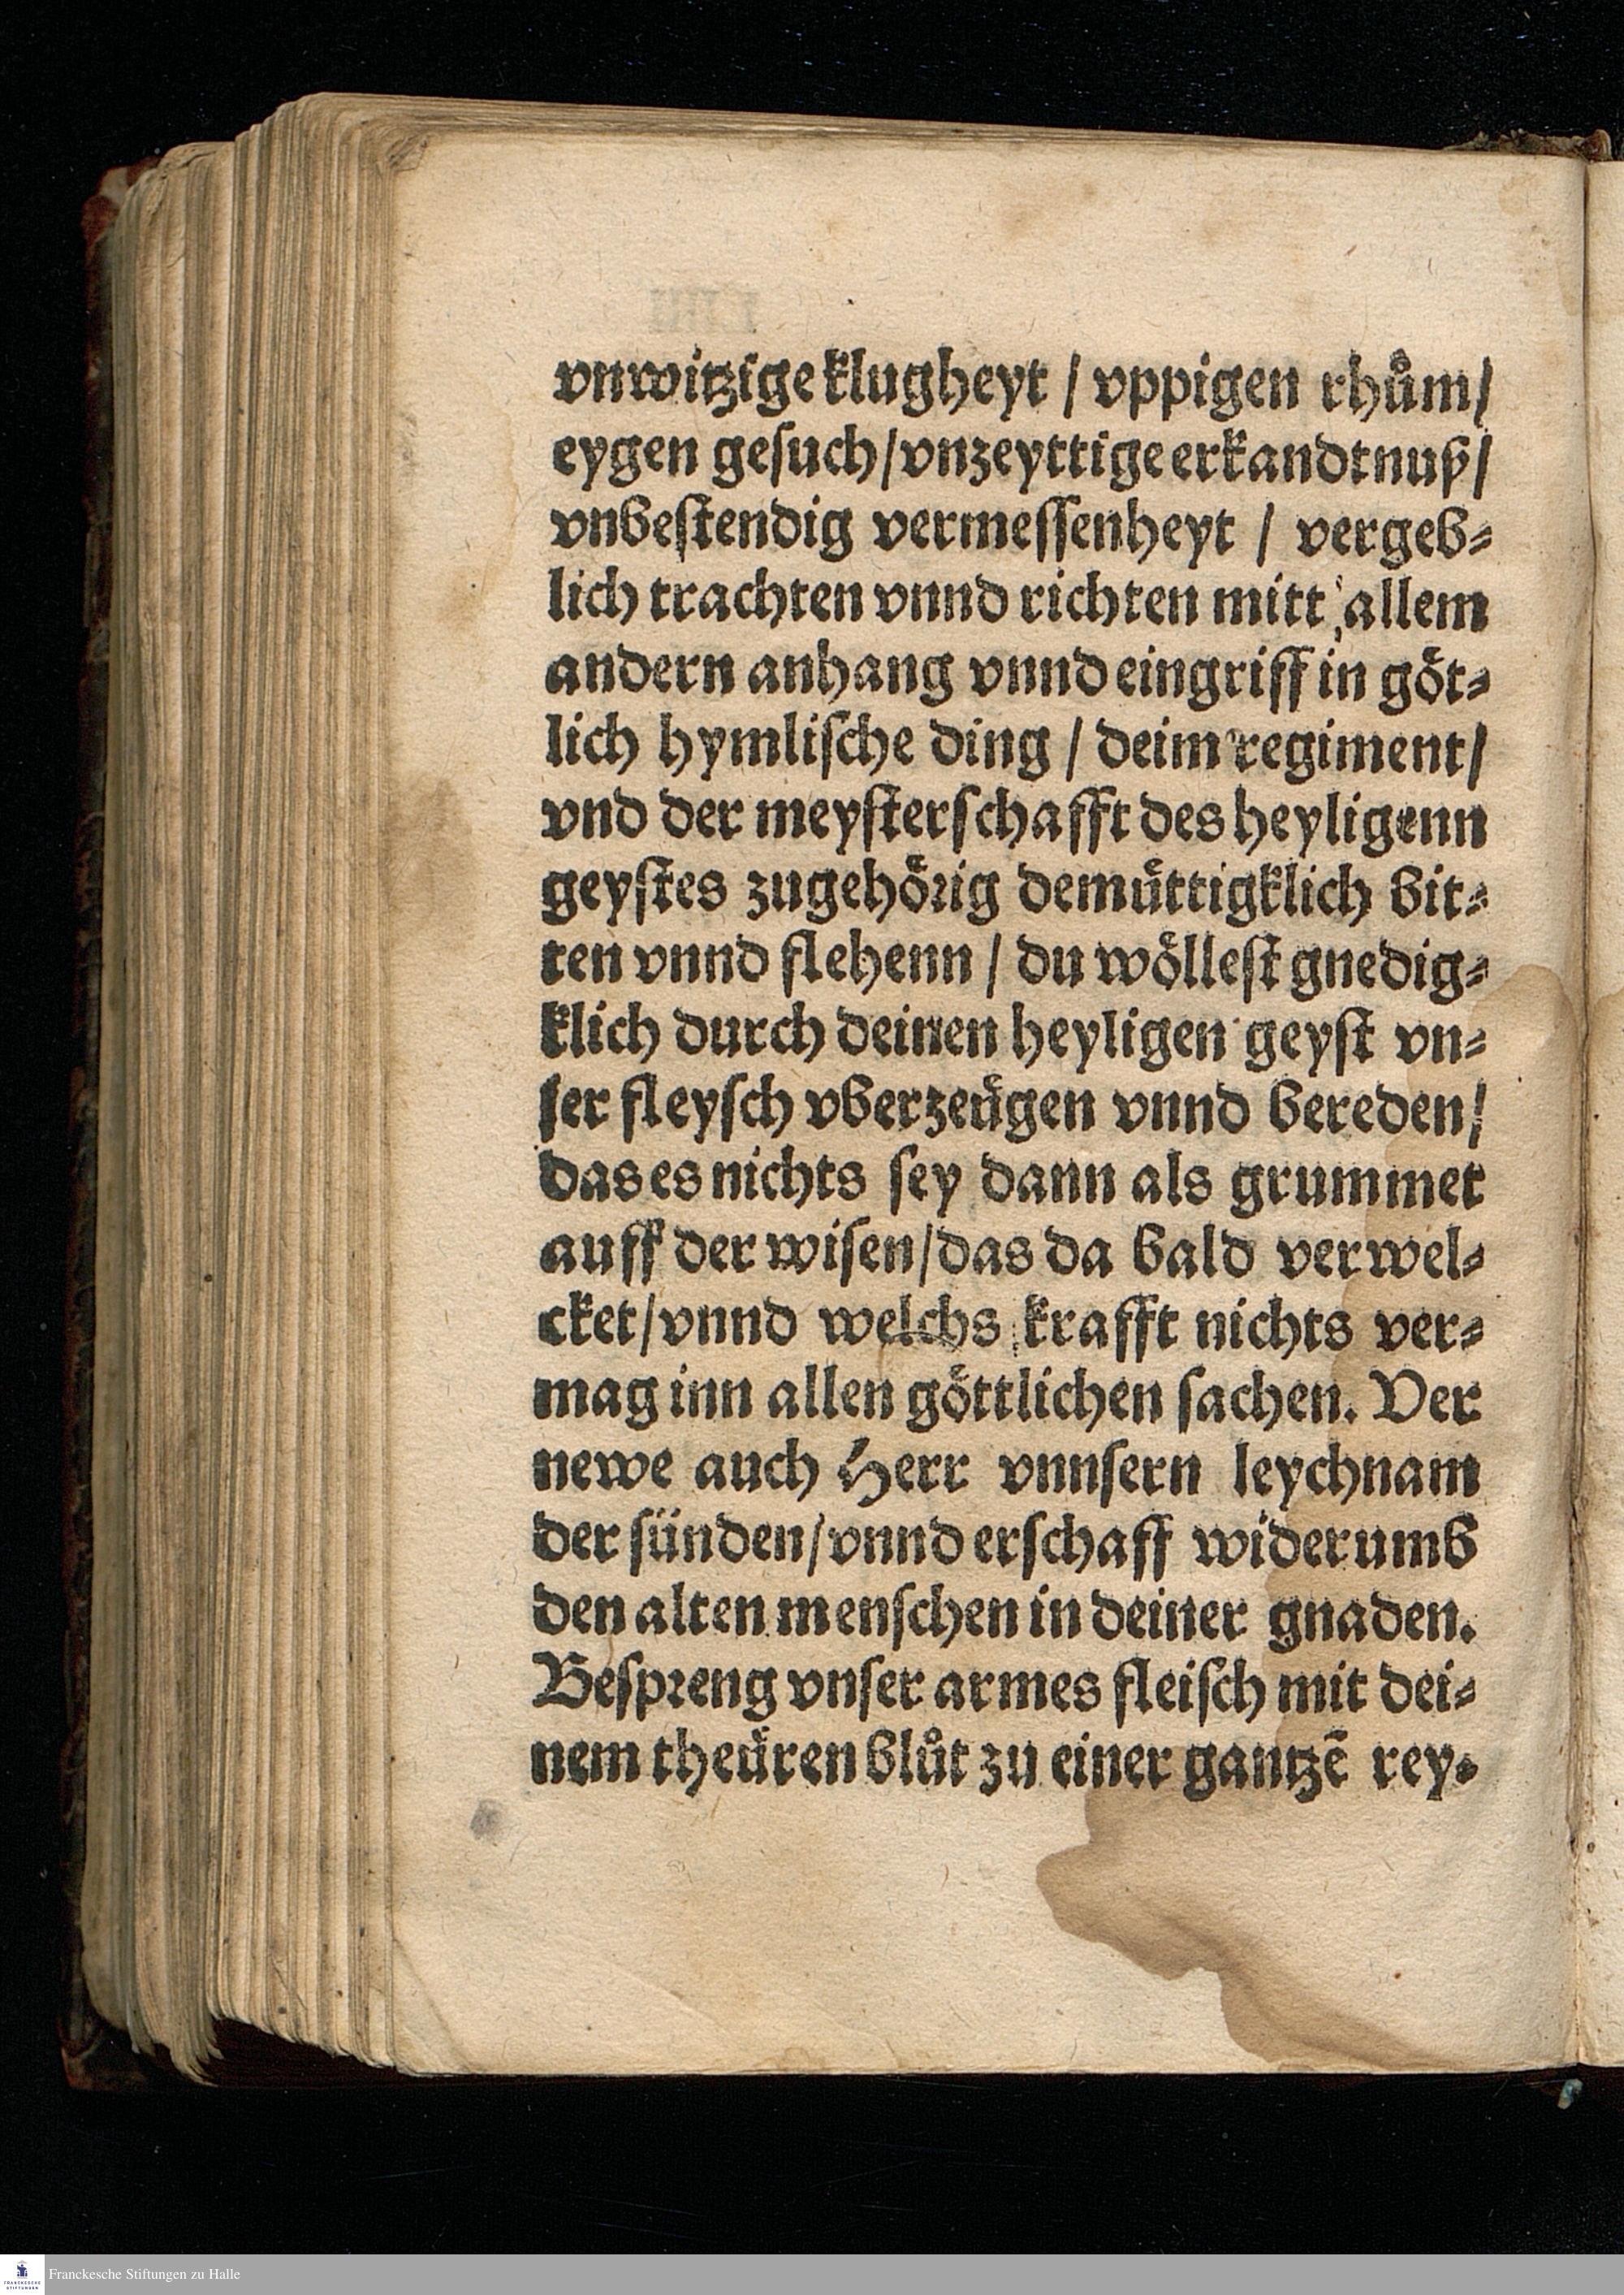 vnwitzige klugheyt / vppigen rhům/
eygen gesuch/vnzeyttige erkandtnuß/
vnbestendig vermessenheyt / vergeb⸗
lich trachten vnnd richten mitt allem
andern anhang vnnd eingriff in göt⸗
lich hymlische ding / deim regiment/
vnd der meysterschafft des heyligenn
geystes zugehörig demüttigklich bit⸗
ten vnnd flehenn / du wöllest gnedig⸗
klich durch deinen heyligen geyst vn⸗
ser fleysch vberzeügen vnnd bereden/
das es nichts sey dann als grummet
auff der wisen/das da bald verwel⸗
cket/vnnd welchs krafft nichts ver⸗
mag inn allen göttlichen sachen. Ver
newe auch Herr vnnsern leychnam
der sünden/vnnd erschaff widerumb
den alten menschen in deiner gnaden.
Bespreng vnser armes fleisch mit dei⸗
nem theüren blůt zu einer gantzē rey⸗
Franckesche Stiftungen zu Halle